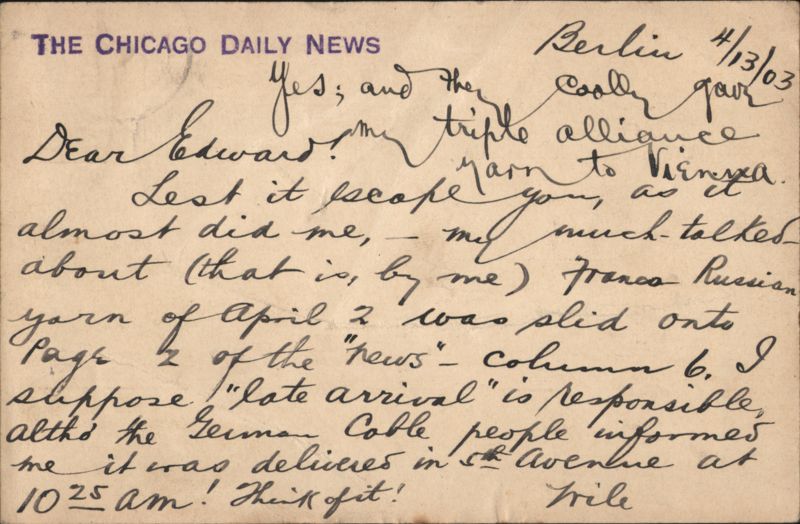 THE CHICAGO DAILY NEWS
Berlin 4/13/03
Yes; and they coolly gave
my triple alliance
yarn to Vienna.
Dear Edward!
Lest it escape you, as it
almost did me, – my much-talked-
about (that is, by me) Franco Russian
yarn of April 2 was slid onto
Page 2 of the "News" – column 6. I
suppose "late arrival" is responsible,
altho' the German Cable people informed
me it was delivered in 5th Avenue at
10 25 am! Think of it!
Wile